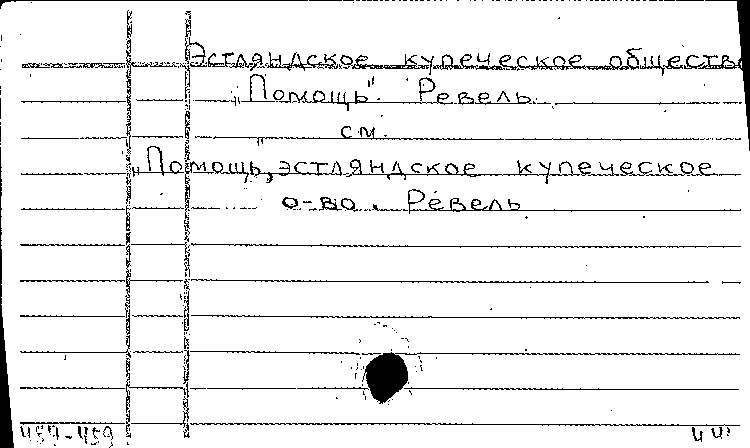 Эстляндское купеческое обществ
„Помощь". Ревель.
см.
„Помощь, эстляндское купеческое
о-во. Ревель
457-459